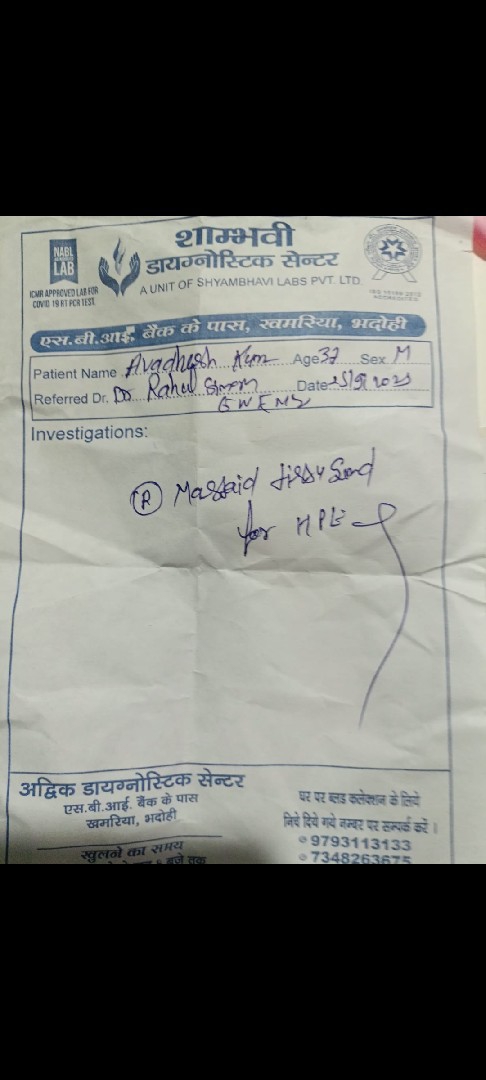 NABL
LAB
ICMR APPROVED LAB FOR
COVID 19 RT PCR TEST
शाम्भवी
डायग्नोस्टिक सेन्टर
A UNIT OF SHYAMBHAVI LABS PVT. LTD.
एस.बी.आई. बैंक के पास, खमरिया, भदोही
Patient Name Avadhesh Age 37 Sex M
Referred Dr. Dr Rahul Date
Investigations:
(R) Mastoid Send
for HPE
अद्विक डायग्नोस्टिक सेन्टर
एस.बी.आई. बैंक के पास
खमरिया, भदोही
खुलने का समय
घर पर ब्लड कलेक्शन के लिये
निचे दिये गये नम्बर पर सम्पर्क करें।
9793113133
7348263675